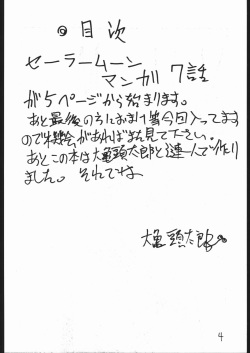 ◎目次
セーラームーン
マンガ 7話
が5ページから始まります。
あと最後のうにおまけ等今回入ってます
ので機会があればまた見て下さい。
あとこの本は大亀頭太郎と達一人で作り
ました。それでは
大亀頭太郎
4